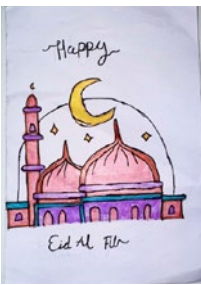 Happy
Eid Al Fitr